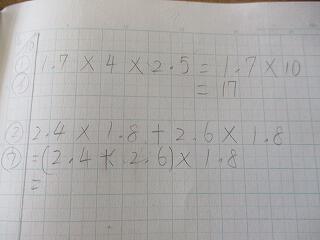 ① 1.7 × 4 × 2.5 = 1.7 × 10
= 17
② 2.4 × 1.8 + 2.6 × 1.8
= (2.4 + 2.6) × 1.8
=